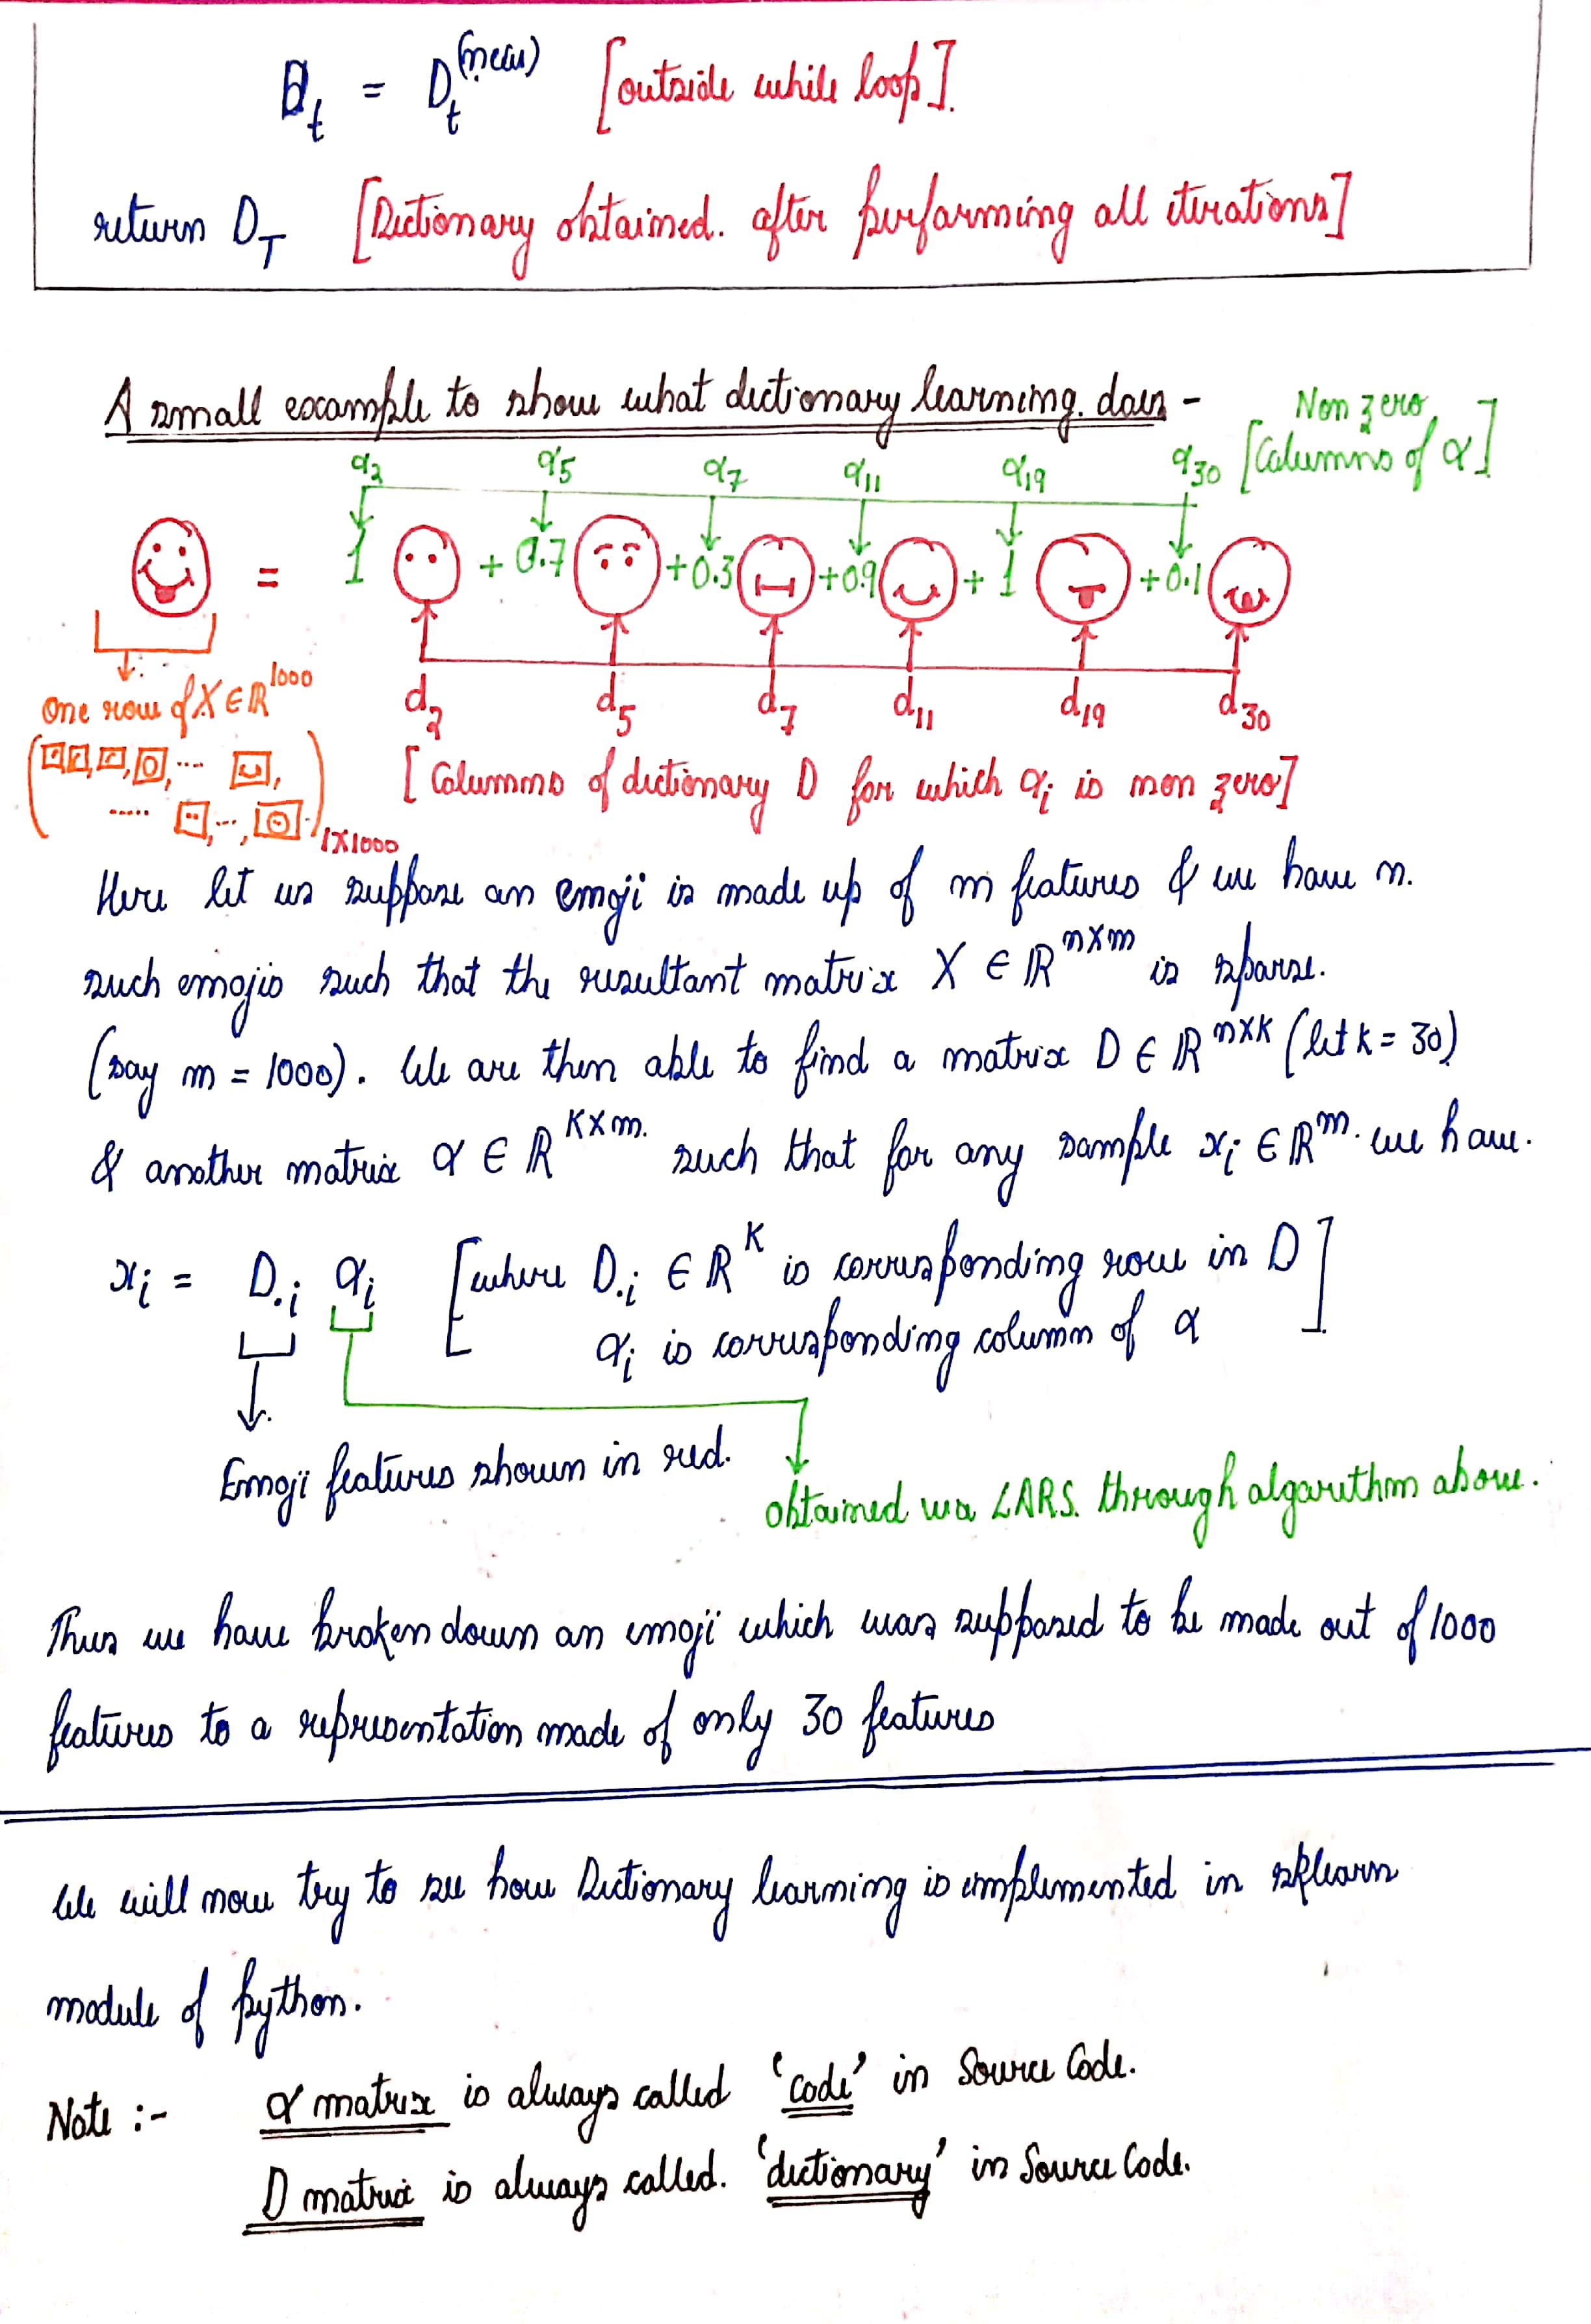 D_t = D_t^(new) [outside while loop].
return D_T [Dictionary obtained. after performing all iterations]
A small example to show what dictionary learning. does -
Non zero
[Columns of α]
α_2 α_5 α_7 α_11 α_19 α_30
= 1 + 0.7 + 0.3 + 0.9 + 1 + 0.1
One row of X ∈ ℝ^1000
d_2 d_5 d_7 d_11 d_19 d_30
1X1000
[Columns of dictionary D for which α_i is non zero]
Here let us suppose an emoji is made up of m features & we have n.
such emojis such that the resultant matrix X ∈ ℝ^nxm is sparse.
(say m = 1000). We are then able to find a matrix D ∈ ℝ^nxk (let k = 30)
& another matrix α ∈ ℝ^kxm. such that for any sample x_i ∈ ℝ^m. we have.
x_i = D._i α_i [where D._i ∈ ℝ^k is corresponding row in D]
α_i is corresponding column of α
Emoji features shown in red.
obtained via LARS. through algorithm above.
Thus we have broken down an emoji which was supposed to be made out of 1000
features to a representation made of only 30 features
We will now try to see how Dictionary learning is implemented in sklearn
module of python.
Note :- α matrix is always called 'code' in Source Code.
D matrix is always called. 'dictionary' in Source Code.